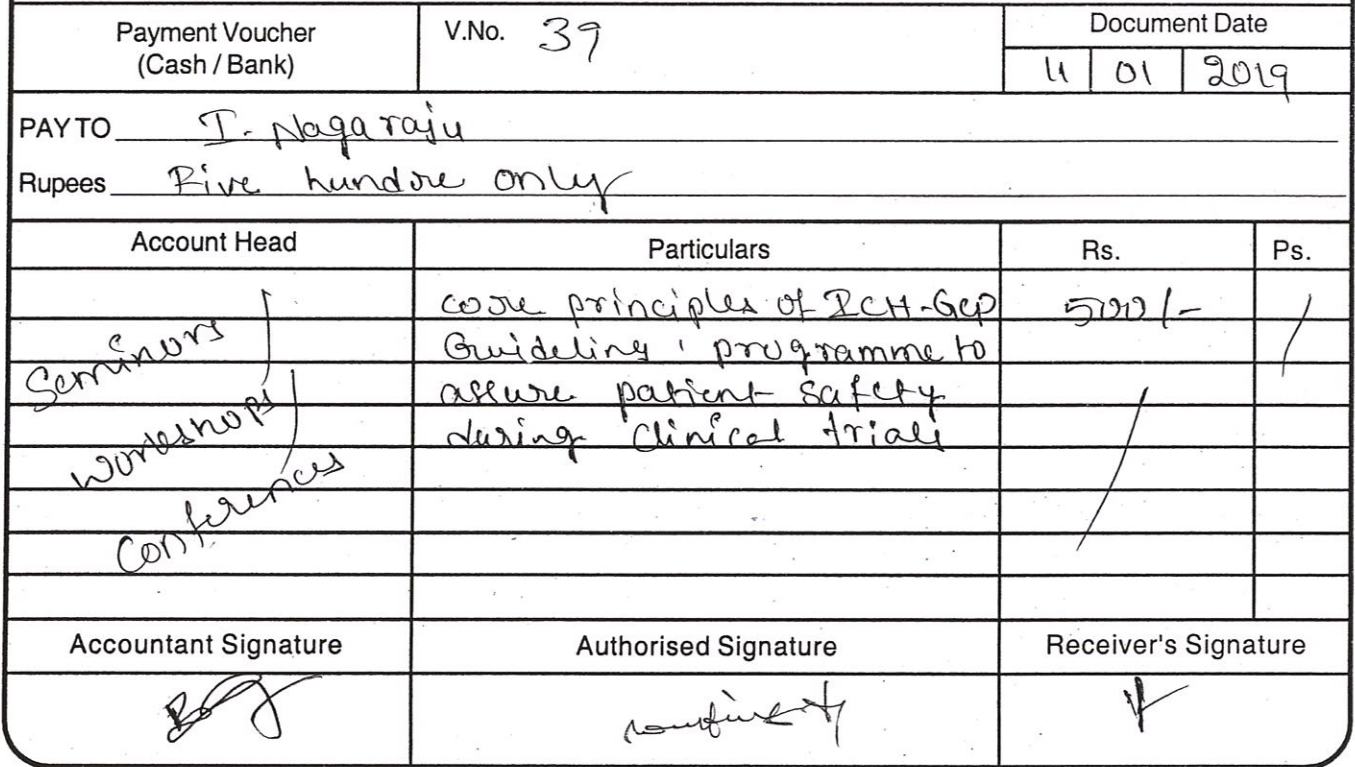 Payment Voucher
(Cash / Bank)
V.No. 39
Document Date
11 01 2019
PAY TO T. Nagaraju
Rupees Five hundre only
Account Head Particulars Rs. Ps.
Seminors /
Workshops /
Conferences
core principles of ICH-GCP 500/- /
Guideline : programme to
assure patient safety
during Clinical trials
Accountant Signature Authorised Signature Receiver's Signature